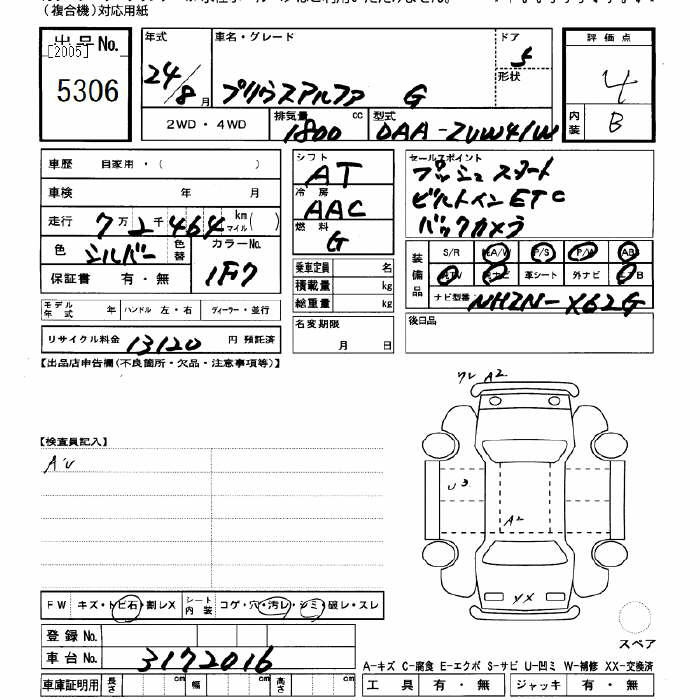 (複合機)対応用紙
出品No.
[2005]
5306
年式
24/8月
車名・グレード
プリウスアルファ G
ドア
5
形状
評価点
4
内装
B
2WD・4WD
排気量
1800 cc
型式
DAA-ZVW41W
車歴 自家用・( )
車検 年 月
走行 7万2千464 km マイル( )
色 シルバー 色替
カラーNo.
1F7
保証書 有・無
モデル年式 年 ハンドル 左・右 ディーラー・並行
リサイクル料金 13120 円 預託済
シフト
AT
冷房
AAC
燃料
G
乗車定員 名
積載量 kg
総重量 kg
名変期限
月 日
セールスポイント
プッシュスタート
ビルトインETC
バックカメラ
装備品
S/R A/W P/S P/W ABS
TV ナビ 革シート 外ナビ B
ナビ型番 NHZN-X62G
後日品
【出品店申告欄(不良箇所・欠品・注意事項等)】
【検査員記入】
A'U
ワレ A2
U3
A2
YX
FW キズ・トビ石・割レX シート内装 コゲ・穴・汚レ・シミ・破レ・スレ
登録No.
車台No. 3172016
スペア
A-キズ C-腐食 E-エクボ S-サビ U-凹ミ W-補修 XX-交換済
車庫証明用 長さ cm 幅 cm 高さ cm
工具 有・無 ジャッキ 有・無